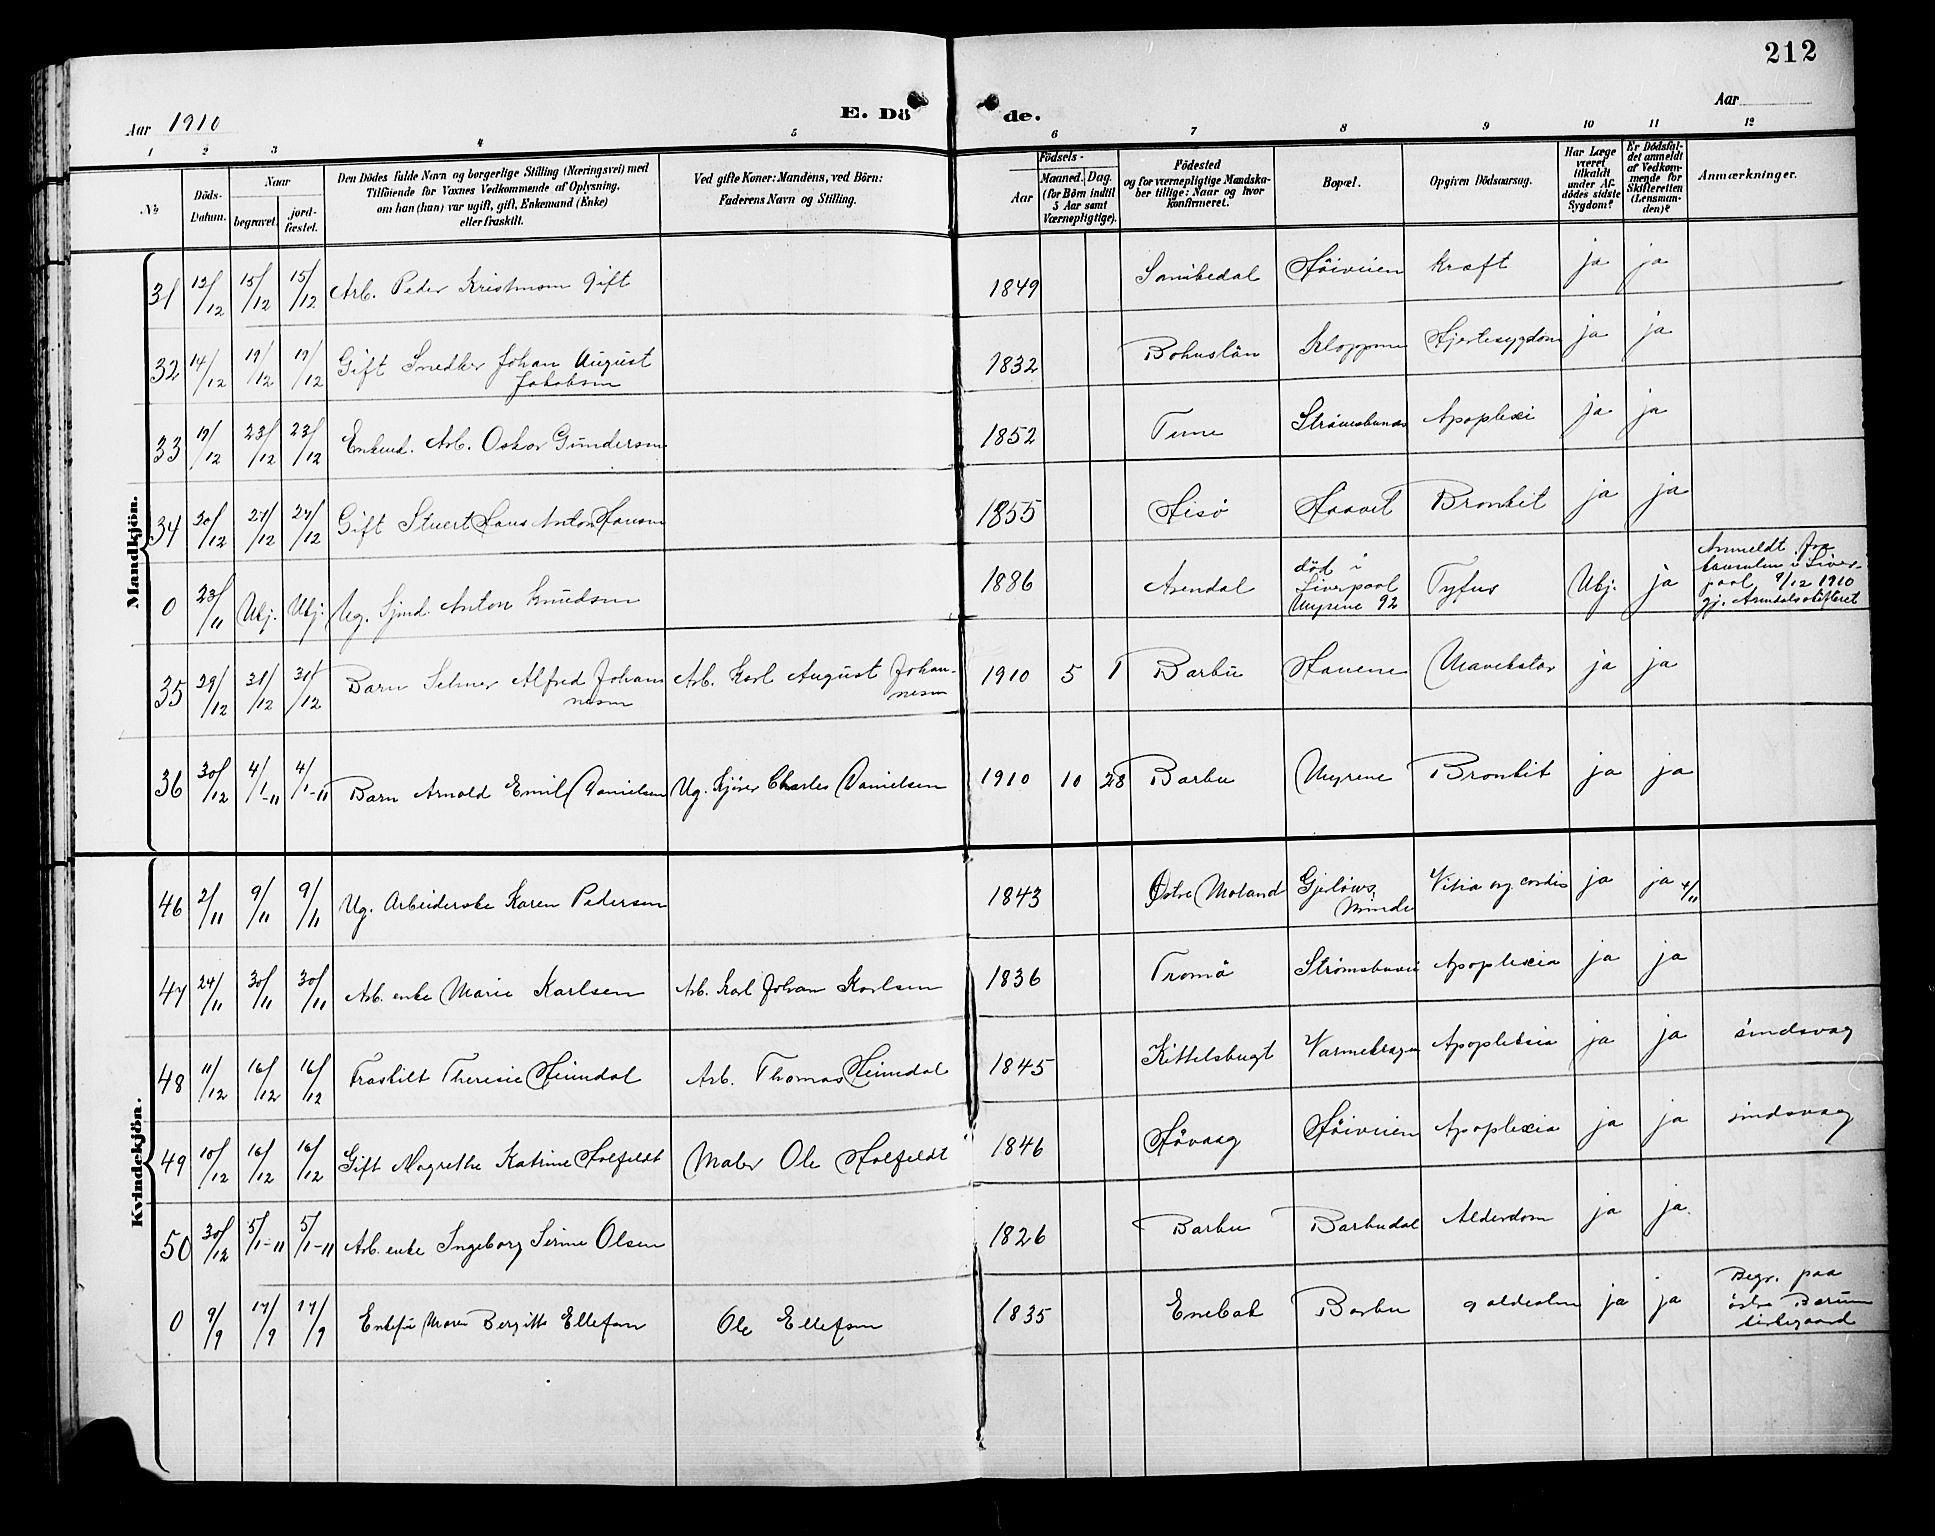 212
Aar 1910
E. Dö de.
Aar
1 2 3 4 5 6 7 8 9 10 11 12
No
Döds-Datum.
Naar
begravet.
jord-fæstet.
Den Dödes fulde Navn og borgerlige Stilling (Næringsvei) med
Tilföiende for Voxnes Vedkommende af Oplysning,
om han (hun) var ugift, gift, Enkemand (Enke)
eller fraskilt.
Ved gifte Koner: Mandens, ved Börn:
Faderens Navn og Stilling.
Födsels-
Aar
Maaned. Dag.
(for Börn indtil
5 Aar samt
Værnepligtige).
Födested
og for værnepligtige Mandska-
ber tillige: Naar og hvor
konfirmeret.
Bopæl.
Opgiven Dödsaarsag.
Har Læge
været
tilkaldt
under Af-
dödes sidste
Sygdom?
Er Dödsfal-
det anmeldt
af Vedkom-
mende for
Skifteretten
(Lensman-
den)?
Anmærkninger.
Mandkjön.
31 12/12 15/12 15/12 Arb. Peder Kristensen gift 1849 Høiveien kræft ja ja
32 14/12 19/12 19/12 Gift Snedker Johan August
Jakobsen 1832 Bohuslän Kloppene Hjertesygdom ja ja
33 19/12 23/12 23/12 Enkem. Arb. Oskar Gundersen 1852 Tune Strømsbunes Apoplexi ja ja
34 20/12 27/12 27/12 Gift Stuert Hans Anton Hansen 1855 Hisö Haavet Bronkit ja ja
0 23/11 Ubj. Ubj. Ug. Sjmd. Anton Knudsen 1886 Arendal død i
Liverpool
Myrene 92 Tyfus Ubj. ja Anmeldt fra
konsulen i Liver-
pool 9/12 1910
gj. Arendals skifteret
35 29/12 31/12 31/12 Barn Selmer Alfred Johan
nesen Arb. Karl August Johan-
nesen 1910 5 1 Barbu Havene Mavekatar ja ja
36 30/12 4/1-11 4/1-11 Barn Arnold Emil Danielsen Ug. Kjører Charles Danielsen 1910 10 28 Barbu Myrene Bronkit ja ja
Kvindekjön.
46 2/11 9/11 9/11 Ug. Arbeiderske Karen Pedersen 1843 Østre Moland Gjerløws
Minde Vitia org cordis ja ja 4/11
47 24/11 30/11 30/11 Arb. enke Marie Karlsen Arb. Karl Johan Karlsen 1836 Tromö Apoplexia ja ja
48 11/12 16/12 16/12 Fraskilt Theresie Heimdal Arb. Thomas Heimdal 1845 Kittelsbugt Apopleksia ja ja sindsvag
49 10/12 16/12 16/12 Gift Magrethe Katrine Holfeldt Maler Ole Holfeldt 1846 Høvaag Høiveien Apoplexia ja ja sindsvag
50 30/12 5/1-11 5/1-11 Arb. enke Ingeborg Serine Olsen 1826 Barbu Barbudal Alderdom ja ja.
0 9/9 17/9 17/9 Enkefru Maren Bergitte Ellefsen Ole Ellefsen 1835 Enebak Barbu ja ja Begr. paa
østre Bærum
kirkegaard